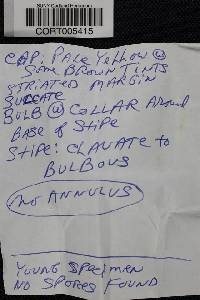 SUNY Cortland Herbarium
CORT005415
CAP: Pale Yellow W
Some Brown TINTS
STRIATED MARGIN
SULCATE
BULB W COLLAR Around
BASE of Stipe
Stipe: CLAVATE to
BULBOUS
NO ANNULUS
YOUNG SPECIMEN
NO SPORES FOUND